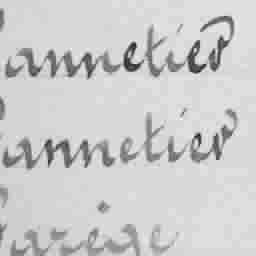 annetier
annetier
arège